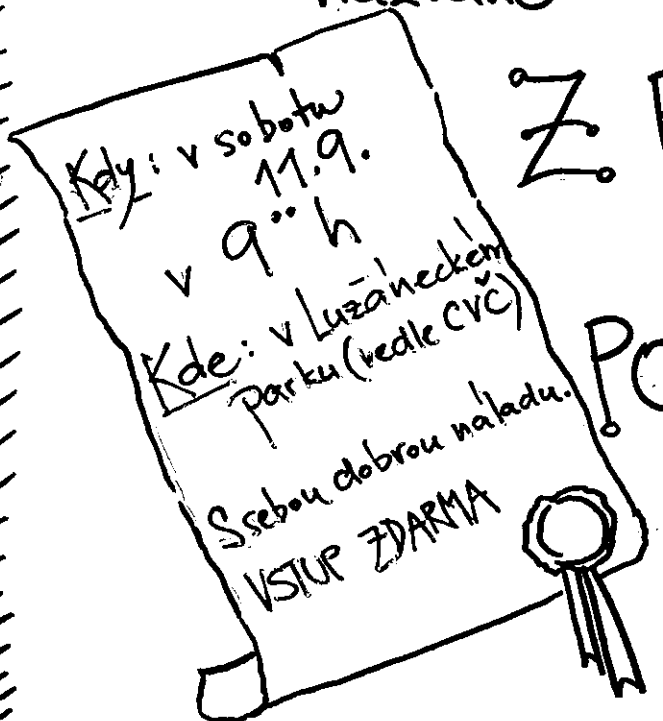 Kdy: v sobotu
11.9.
v 9⁰⁰ h
Kde: v Lužáneckém
parku (vedle CVČ)
S sebou dobrou náladu.
VSTUP ZDARMA
Z
PO